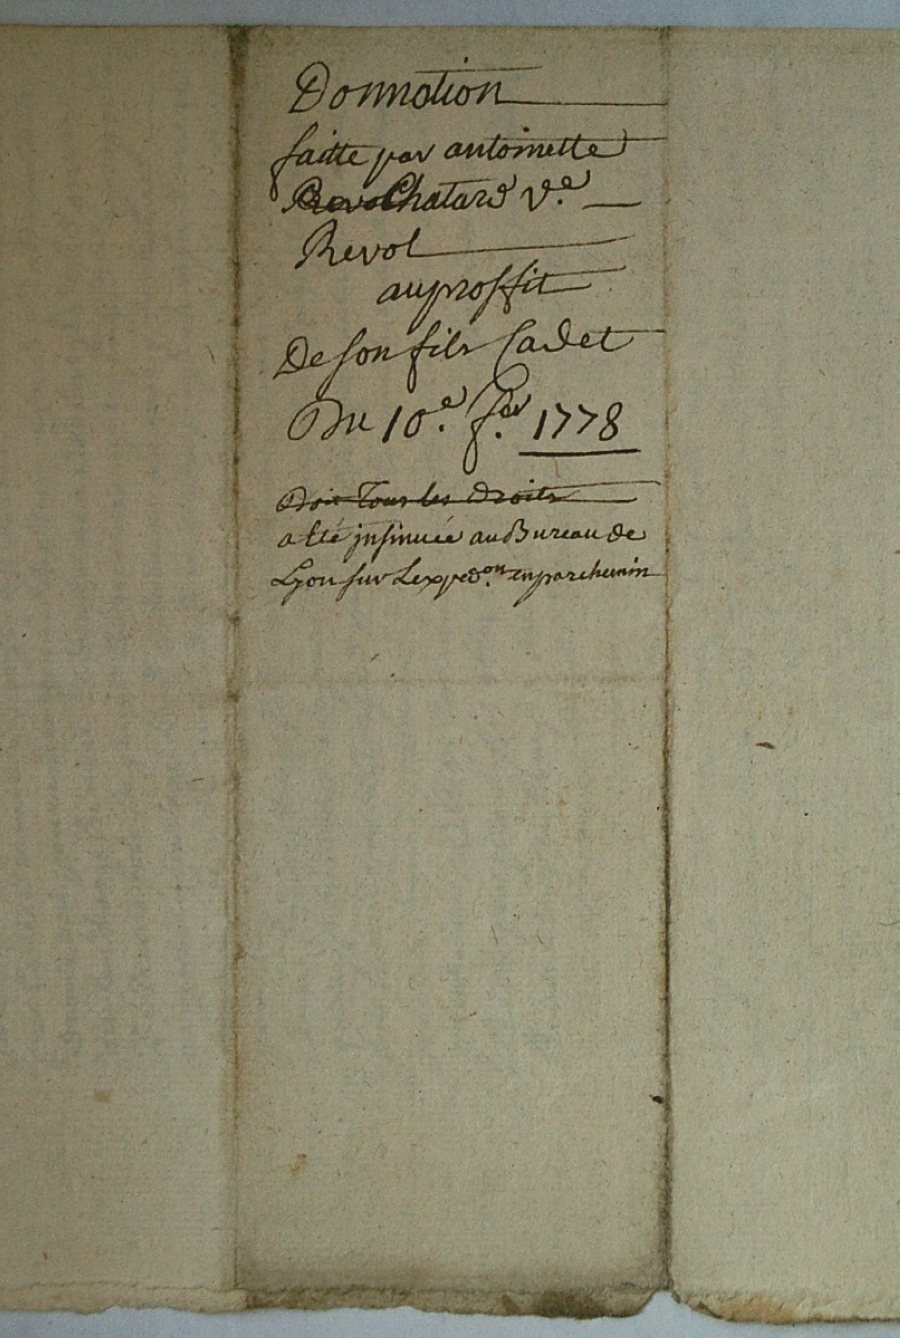 Donnation
faitte par antoinette
Chatard v.e
Revol
au proffit
De son fils Cadet
Du 10.e f.er 1778
Doit Tous les droits
a été insinuée au Bureau de
Lyon sur Lexped.on en parchemin